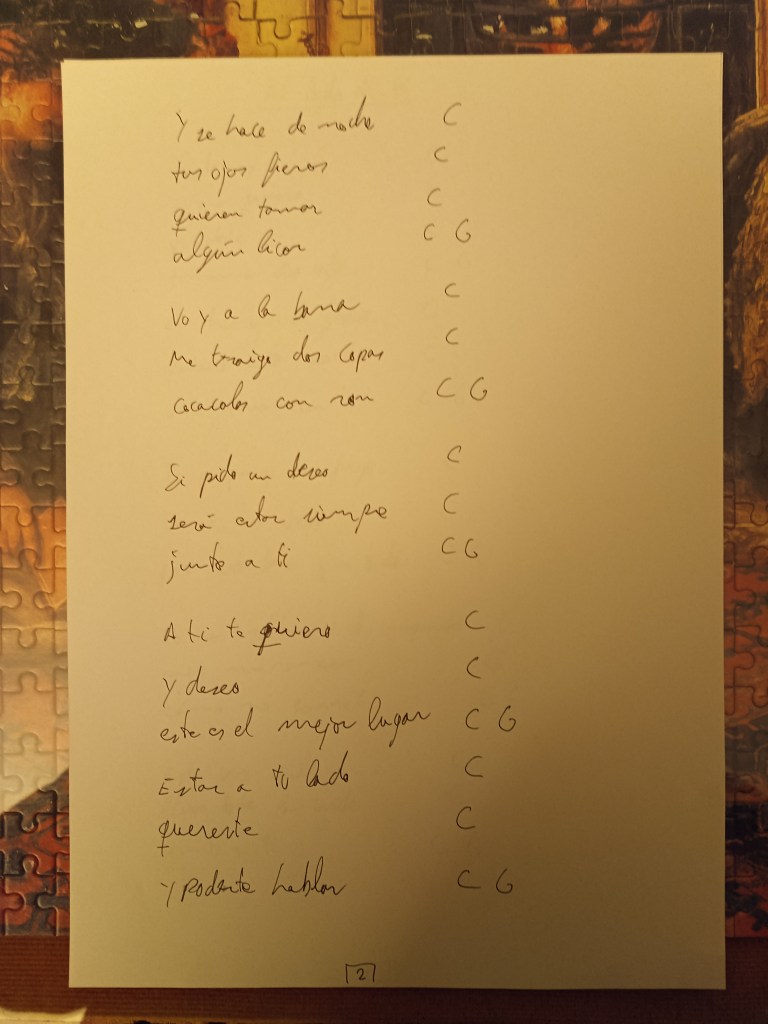 Y se hace de noche C
tus ojos fieros C
quieren tomar C
algún licor C G
Voy a la barra C
Me traigo dos copas C
cocacolas con ron C G
Si pido un deseo C
será estar siempre C
junto a ti C G
A ti te quiero C
y deseo C
este es el mejor lugar C G
Estar a tu lado C
quererte C
y poderte hablar C G
2